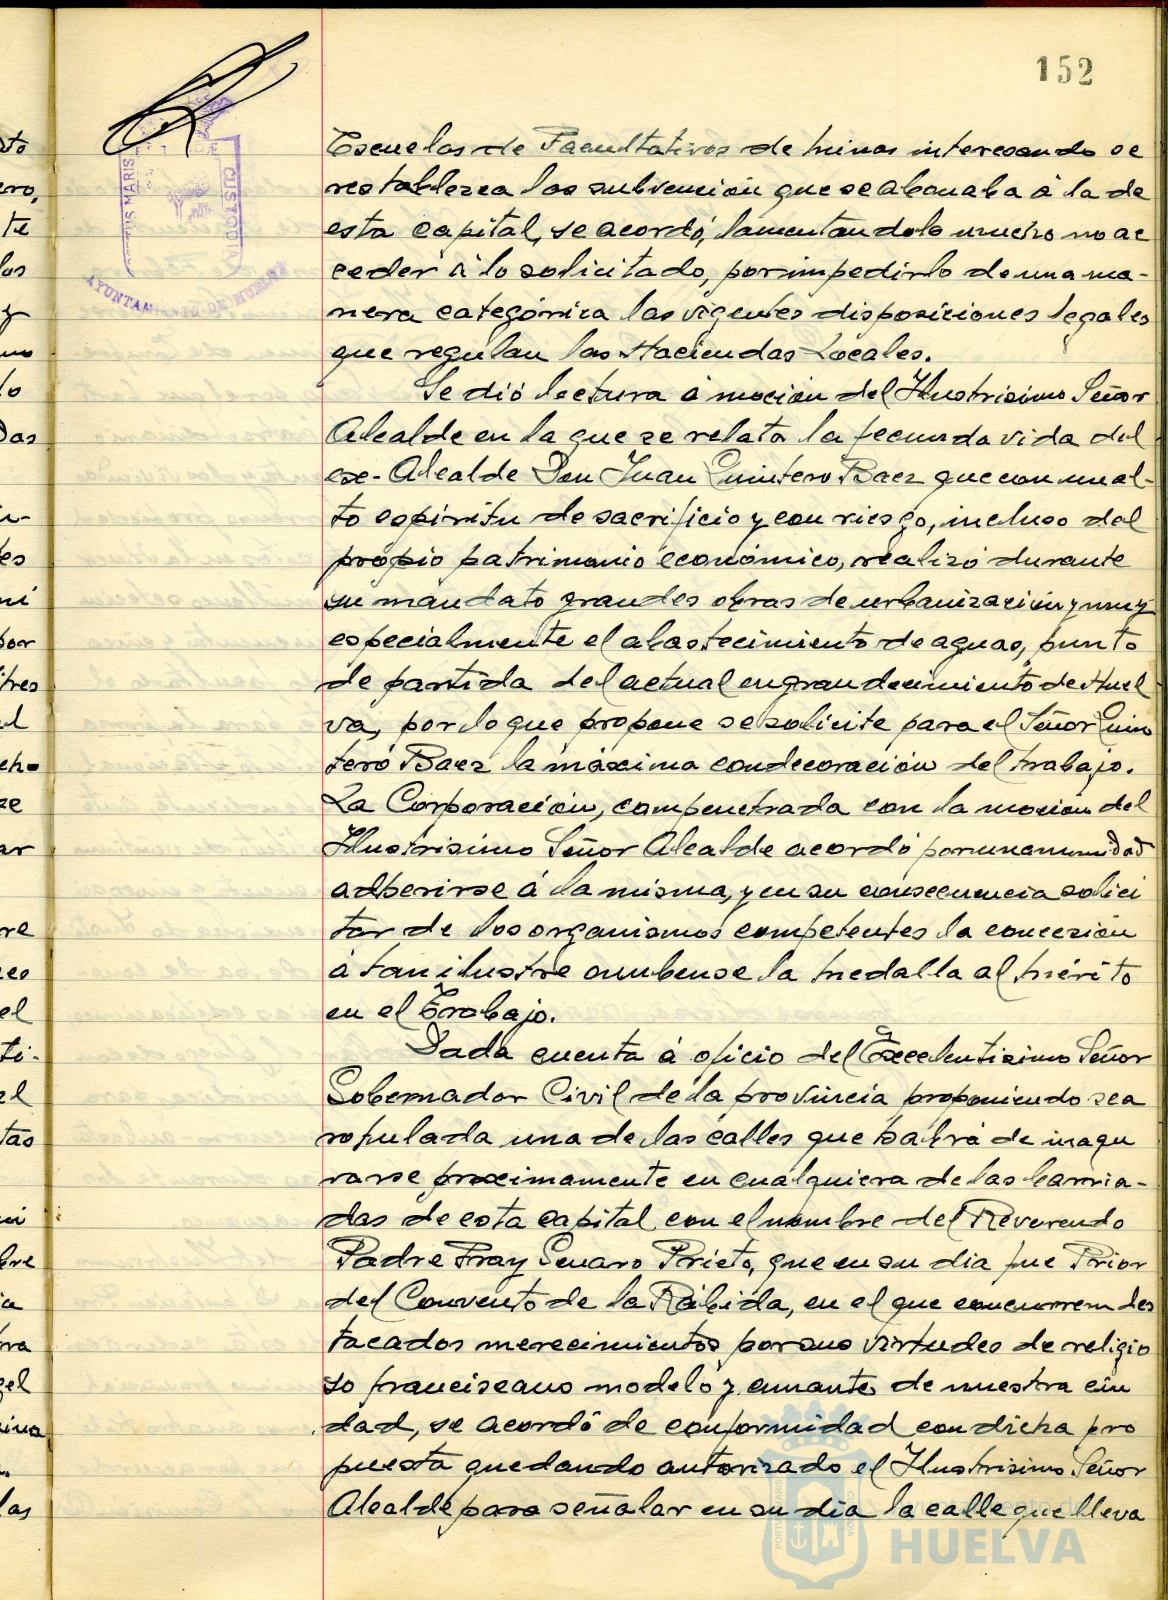 152
Escuelas de Facultativos de minas interesando se
restablezca las subvención que se abonaba á la de
esta capital, se acordó, lamentandolo mucho no ac
ceder á lo solicitado, por impedirlo de una ma-
nera categórica las vigentes disposiciones legales
que regulan las Haciendas Locales.
Se dió lectura á moción del Ilustrisimo Señor
Alcalde en la que se relata la fecunda vida del
ex-Alcalde Don Juan Quintero Baez que con un al-
to espiritu de sacrificio y con riesgo, incluso del
propio patrimonio económico, realizó durante
su mandato grandes obras de urbanización y muy
especialmente el abastecimiento de aguas, punto
de partida del actual engrandecimiento de Huel
va, por lo que propone se solicite para el Señor Quin
tero Baez la máxima condecoración del trabajo.
La Corporación, compenetrada con la moción del
Ilustrisimo Señor Alcalde acordó por unanimidad
adherirse á la misma, y en su consecuencia solici
tar de los organismos competentes la concesión
á tan ilustre onubense la medalla al mérito
en el Trabajo.
Dada cuenta á oficio del Excelentisimo Señor
Gobernador Civil de la provincia proponiendo sea
rotulada una de las calles que habrá de inagu
rarse proximamente en cualquiera de las barria-
das de esta capital con el nombre del Reverendo
Padre Fray Genaro Prieto, que en su dia fue Prior
del Convento de la Rábida, en el que concurren des
tacados merecimientos por sus virtudes de religio
so franciscano modelo y amante de nuestra ciu
dad, se acordó de conformidad con dicha pro
puesta quedando autorizado el Ilustrisimo Señor
Alcalde para señalar en su dia la calle que lleva
CUSTODIA
AYUNTAMIENTO DE HUELVA
HUELVA